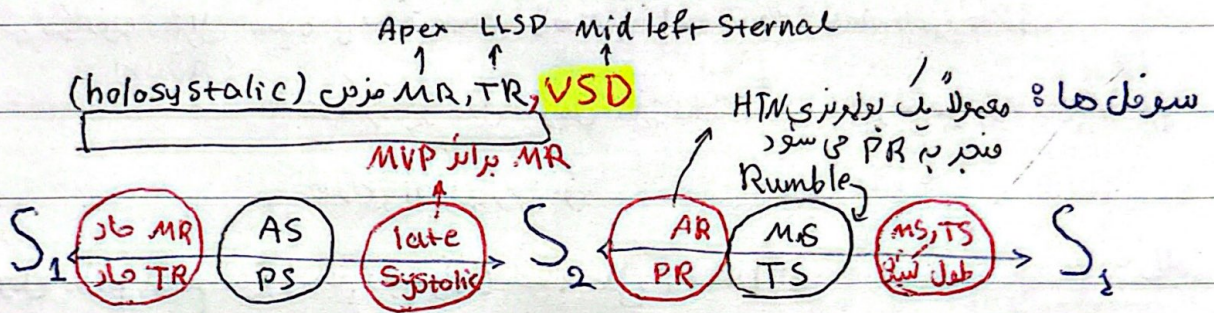 Apex LLSD Mid left Sternal
(holosystalic) مزمن MR, TR, VSD
سوفل ها :
معمولاً یک پولمونری HTN
منجر به PR می شود
MR براثر MVP
Rumble
S1
MR حاد
TR حاد
AS
PS
late
Systolic
S2
AR
PR
MS
TS
MS, TS
طول
S1